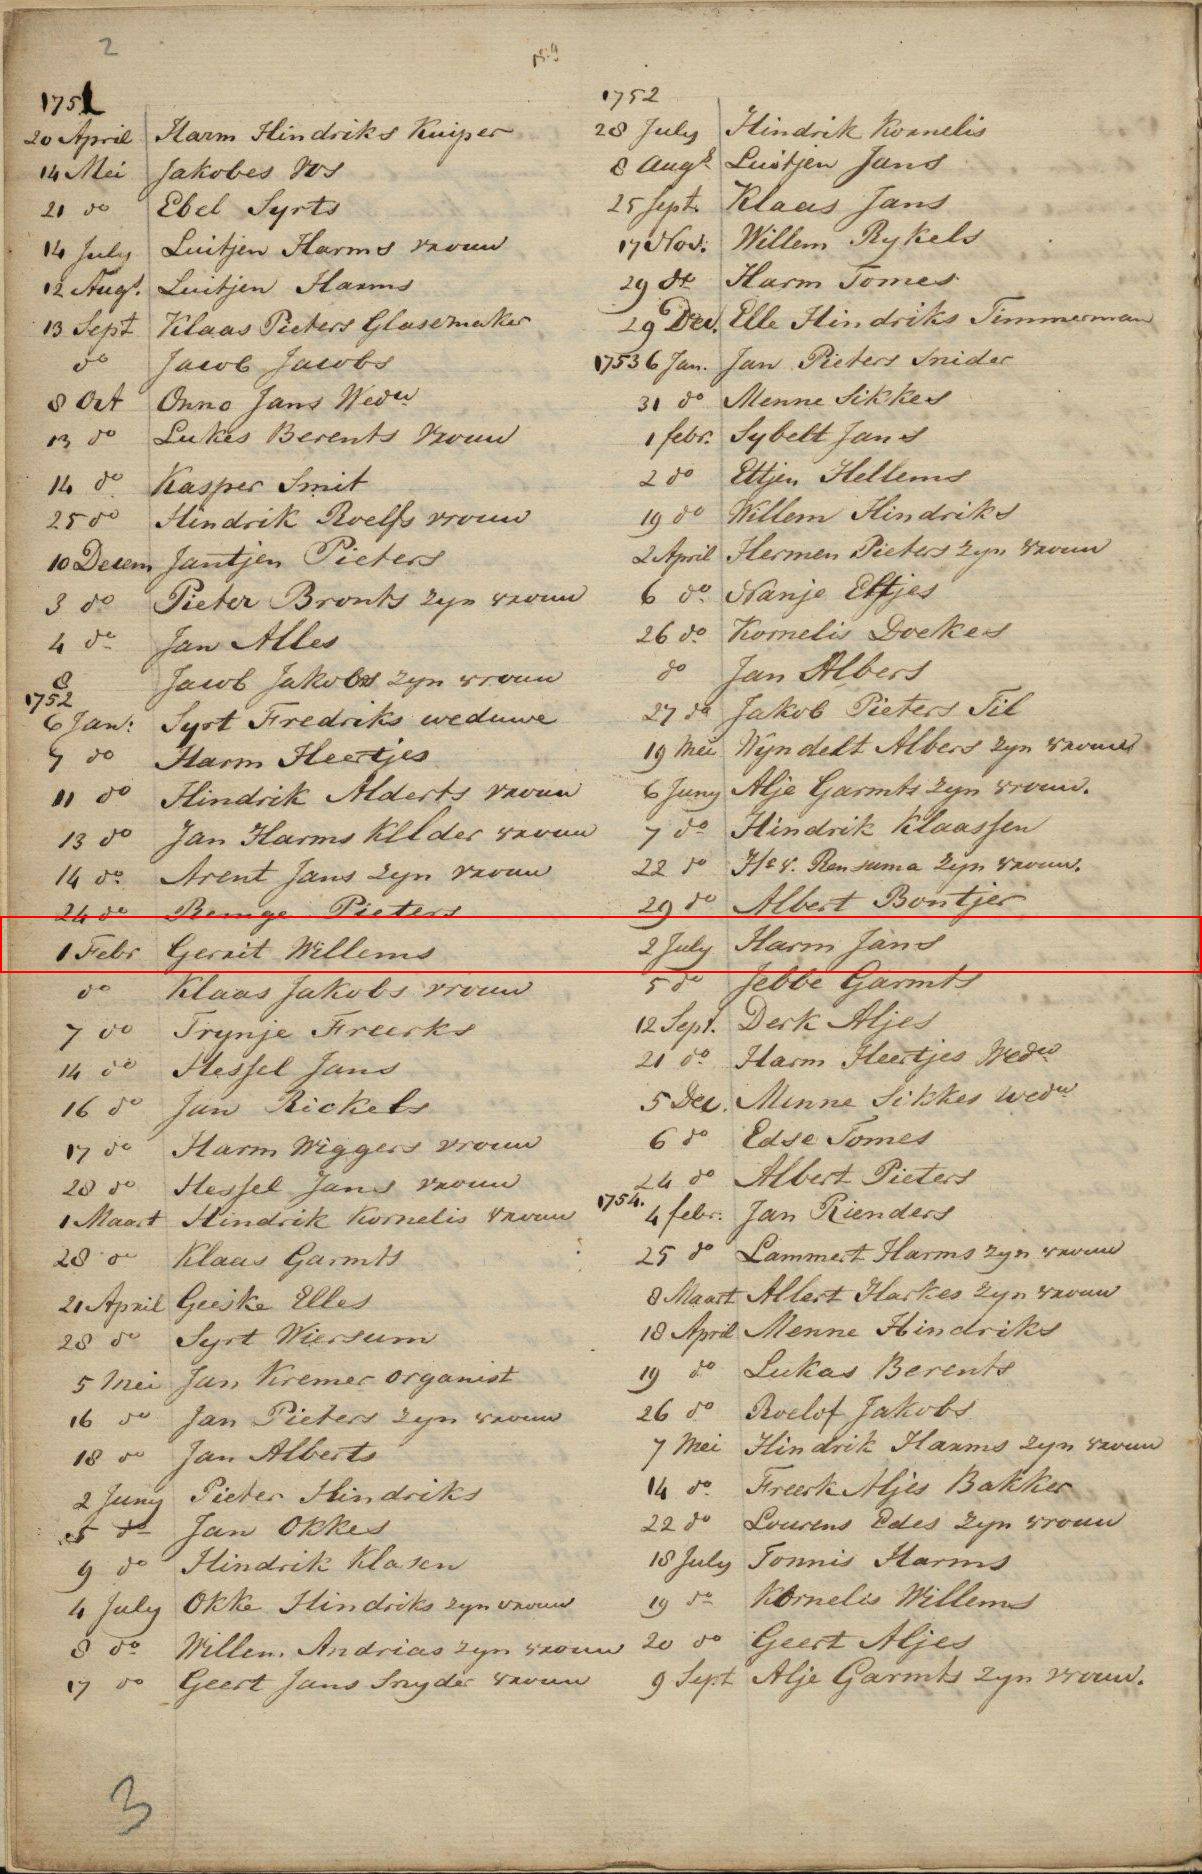 2
1751
20 April Harm Hindriks Kuiper
14 Mei Jakobes Vos
21 do Ebel Syrts
14 July Luitjen Harms vrouw
12 Augt. Luitjen Harms
13 Sept Klaas Pieters Glasemaker
do Jacob Jacobs
8 Oct Onno Jans Wedw
13 do Lukes Berents vrouw
14 do Kasper Smit
25 do Hindrik Roelfs vrouw
10 Decem Jantjen Pieters
3 do Pieter Bronts zyn vrouw
4 do Jan Alles
8 Jacob Jakobs zyn vrouw
1752
6 Jan: Syrt Fredriks weduwe
7 do Harm Heertjes
11 do Hindrik Alderts vrouw
13 do Jan Harms Kllder vrouw
14 do Arent Jans zyn vrouw
24 do Remge Pieters
1 Febr Gerrit Willems
do Klaas Jakobs vrouw
7 do Trynje Freerks
14 do Hessel Jans
16 do Jan Rickels
17 do Harm Wiggers vrouw
28 do Hessel Jans vrouw
1 Maart Hindrik Kornelis vrouw
28 do Klaas Garmts
21 April Geeske Elles
28 do Syrt Wiersum
5 Mei Jan Kremer organist
16 do Jan Pieters zyn vrouw
18 do Jan Alberts
2 Juny Pieter Hindriks
5 do Jan Okkes
9 do Hindrik Klasen
4 July Okke Hindriks zyn vrouw
8 do Willem Andrias zyn vrouw
17 do Geert Jans Snyder vrouw
3
1752
28 July Hindrik Kornelis
8 Augt Luitjen Jans
25 Sept. Klaas Jans
17 Nov. Willem Rykels
29 do Harm Tomes
29 Dec. Elle Hindriks Timmerman
1753 6 Jan. Jan Pieters Snider
31 do Menne Sikkes
1 febr. Sybelt Jans
2 do Ettjen Hellems
19 do Willem Hindriks
2 April Hermen Pieters zyn vrouw
6 do Nanje Eltjes
26 do Kornelis Doekes
do Jan Albers
27 do Jakob Pieters Til
19 Mei Wyndelt Albers zyn vrouw
6 Juny Alje Garmts zyn vrouw.
7 do Hindrik Klaassen
22 do Hs v. Rensuma zyn vrouw.
29 do Albert Bontjer
2 July Harm Jans
5 do Jebbe Garmts
12 Sept. Derk Aljes
21 do Harm Heertjes Wedw
5 Dec. Menne Sikkes wedw
6 do Edse Tomes
24 do Albert Pieters
1754. 4 febr. Jan Rienders
25 do Lammert Harms zyn vrouw
8 Maart Albert Harkes zyn vrouw
18 April Menne Hindriks
19 do Lukas Berents
26 do Roelof Jakobs
7 Mei Hindrik Harms zyn vrouw
14 do Freerk Aljes Bakker
22 do Lourens Edes zyn vrouw
18 July Tonnis Harms
19 do Kornelis Willems
20 do Geert Aljes
9 Sept Alje Garmts zyn vrouw.